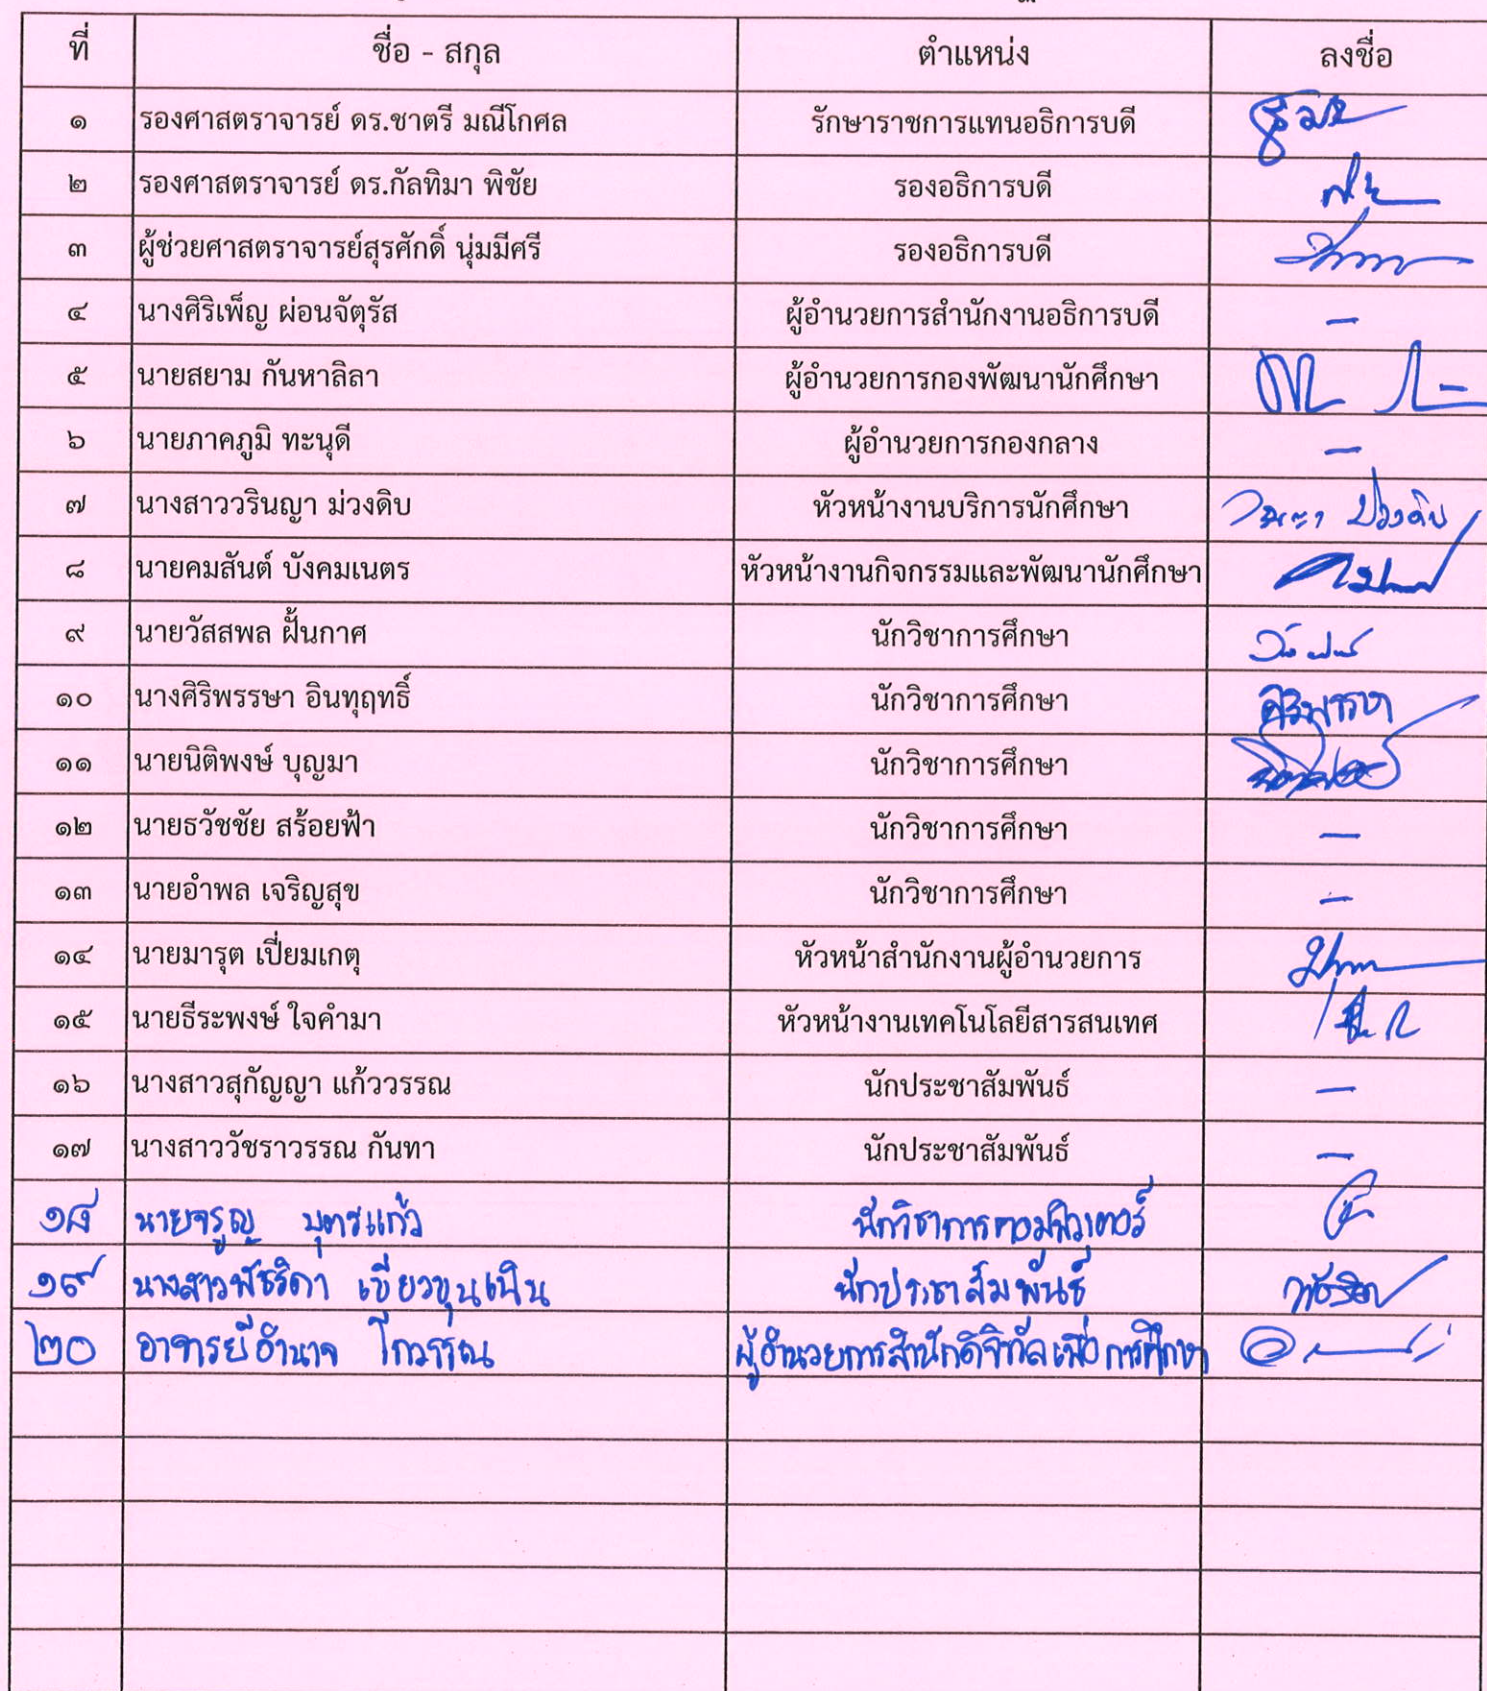 ที่ ชื่อ - สกุล ตำแหน่ง ลงชื่อ
๑ รองศาสตราจารย์ ดร.ชาตรี มณีโกศล รักษาราชการแทนอธิการบดี
๒ รองศาสตราจารย์ ดร.กัลทิมา พิชัย รองอธิการบดี
๓ ผู้ช่วยศาสตราจารย์สุรศักดิ์ นุ่มมีศรี รองอธิการบดี
๔ นางศิริเพ็ญ ผ่อนจัตุรัส ผู้อำนวยการสำนักงานอธิการบดี –
๕ นายสยาม กันหาลิลา ผู้อำนวยการกองพัฒนานักศึกษา
๖ นายภาคภูมิ ทะนุดี ผู้อำนวยการกองกลาง –
๗ นางสาววรินญา ม่วงดิบ หัวหน้างานบริการนักศึกษา
๘ นายคมสันต์ บังคมเนตร หัวหน้างานกิจกรรมและพัฒนานักศึกษา
๙ นายวัสสพล ฝั้นกาศ นักวิชาการศึกษา
๑๐ นางศิริพรรษา อินทุฤทธิ์ นักวิชาการศึกษา ศิริพรรษา
๑๑ นายนิติพงษ์ บุญมา นักวิชาการศึกษา
๑๒ นายธวัชชัย สร้อยฟ้า นักวิชาการศึกษา –
๑๓ นายอำพล เจริญสุข นักวิชาการศึกษา –
๑๔ นายมารุต เปี่ยมเกตุ หัวหน้าสำนักงานผู้อำนวยการ
๑๕ นายธีระพงษ์ ใจคำมา หัวหน้างานเทคโนโลยีสารสนเทศ
๑๖ นางสาวสุกัญญา แก้ววรรณ นักประชาสัมพันธ์ –
๑๗ นางสาววัชราวรรณ กันทา นักประชาสัมพันธ์ –
๑๘ นายจรูญ บุตรแก้ว นักวิชาการคอมพิวเตอร์
๑๙ นางสาวพัชริดา เขียวขุนเนิน นักประชาสัมพันธ์ พัชริดา
๒๐ อาจารย์อำนาจ โกวรรณ ผู้อำนวยการสำนักดิจิทัลเพื่อการศึกษา